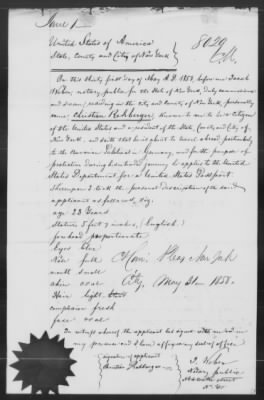 June 1
United States of America
State, County and City of New York
8029
On this thirty first day of May A.D. 1858, before me Jacob
Weber, notary public for the State of New York, duly commissioned
and sworn, residing in the city and county of New York, personally
came, Christian Rehberger, known to me to be a citizen
of the United States and a resident of the State, County and City of
New York, and saith that he is about to travel abroad, particularly
to the in Germany, and for the purpose of
protection during his intended journey he applies to the United
States Department for a United States Passport
Whereupon I took the personal description of the said
applicant as follows, viz:
age 23 Years
Stature 5 feet 7 inches, (English)
forehead proportionate
Eyes blue
Nose full
mouth small
chin oval
Hair light
complexion fresh
face oval
New York
City, May 31 1858.
In witness whereof the applicant has signed with me and in
my presence and I have affixed my seal of office
signature of applicant
Christian Rehberger
J. Weber
Notary public
street
N. Y.